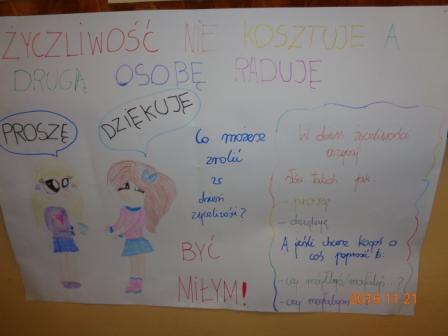 ŻYCZLIWOŚĆ NIE KOSZTUJE A
DRUGĄ OSOBĘ RADUJĘ
PROSZĘ
DZIĘKUJĘ
Co możesz
zrobić
w
dzień
życzliwości?
BYĆ
MIŁYM!
W dzień życzliwości
używaj
słów takich jak:
- proszę
- dziękuję
A jeśli chcesz kogoś o
coś poprosić to:
- czy mógłbyś/mogłabyś ?
- czy
2016 11 21